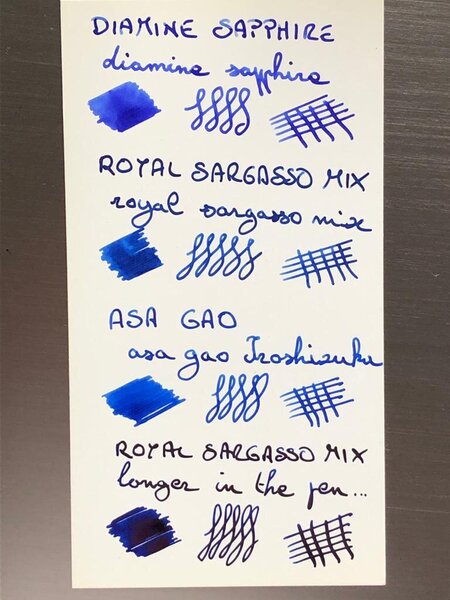 DIAMINE SAPPHIRE
diamine sapphire
ROYAL SARGASSO MIX
royal sargasso mix
ASA GAO
asa gao Iroshizuku
ROYAL SARGASSO MIX
longer in the pen...